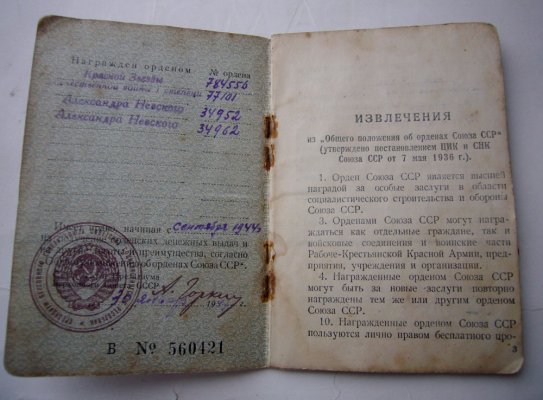 Награжден орденом № ордена
Красной Звезды 784556
Отечественной войны I степени 77101
Александра Невского 34952
Александра Невского 34962
начиная с сентября 1944 г.
денежных выдач и
преимущества, согласно
об орденах Союза ССР".
А. Горкин
Б № 560421
ИЗВЛЕЧЕНИЯ
из „Общего положения об орденах Союза ССР"
(утверждено постановлением ЦИК и СНК
Союза ССР от 7 мая 1936 г.).
1. Орден Союза ССР является высшей
наградой за особые заслуги в области
социалистического строительства и обороны
Союза ССР.
3. Орденами Союза ССР могут награ-
ждаться как отдельные граждане, так и
войсковые соединения и воинские части
Рабоче-Крестьянской Красной Армии, пред-
приятия, учреждения и организации.
4. Награжденные орденом Союза ССР
могут быть за новые заслуги повторно
награждены тем же или другим орденом
Союза ССР.
10. Награжденные орденом Союза ССР
пользуются лично правом бесплатного про-
3